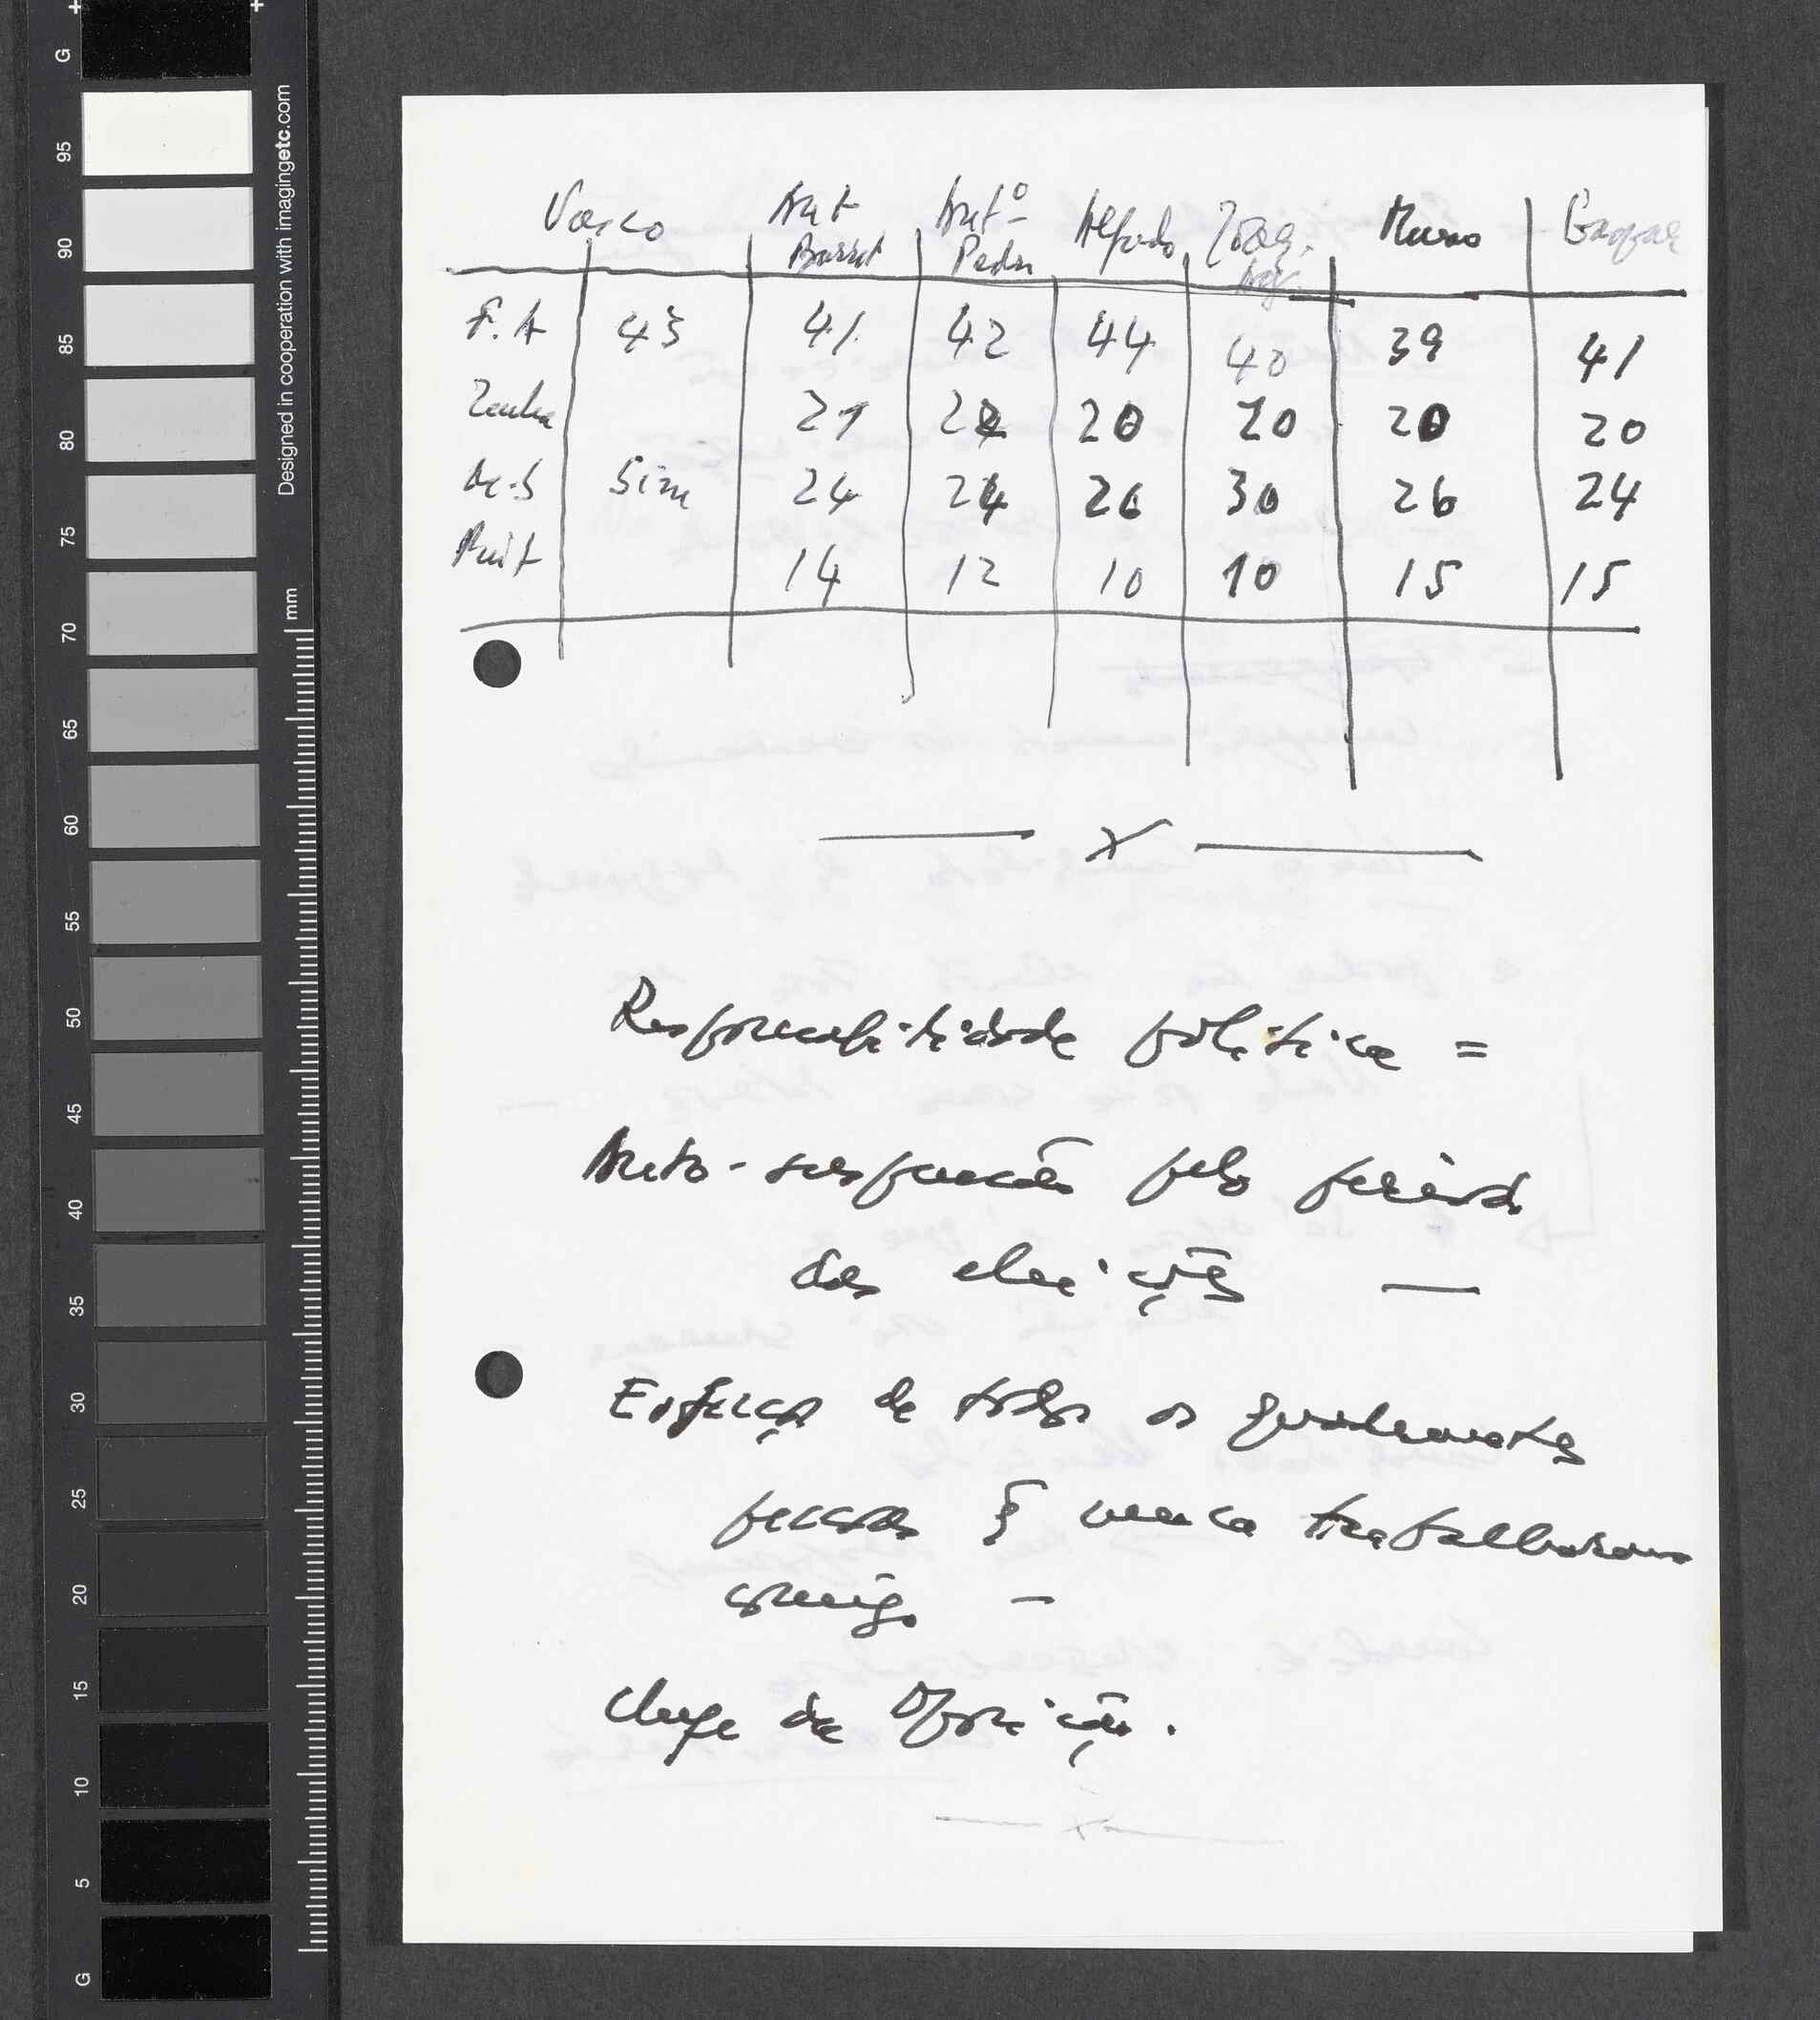 Vasco Ant Barret Antº Pedro Alfredo Joaq. Mário Gaspar
F.A 43 41 42 44 40 39 41
Zenha 21 20 20 20 20
M.S Sim 24 24 26 30 26 24
Pint 14 12 10 10 15 15
— X —
Responsabilidade política =
Auto-suspensão pelo período
das eleições —
Esforço de todos os quadrantes
pessoas q̃ nunca trabalharam
comigo —
Chefe da Oposição.
G
95
90
85
80
75
70
65
60
55
50
45
40
35
30
25
20
15
10
5
G
Designed in cooperation with imagingetc.com
mm